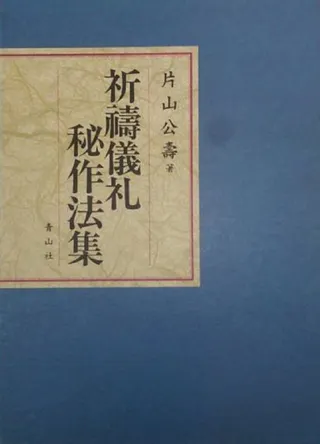 片山公壽著
祈禱儀礼
秘作法集
青山社